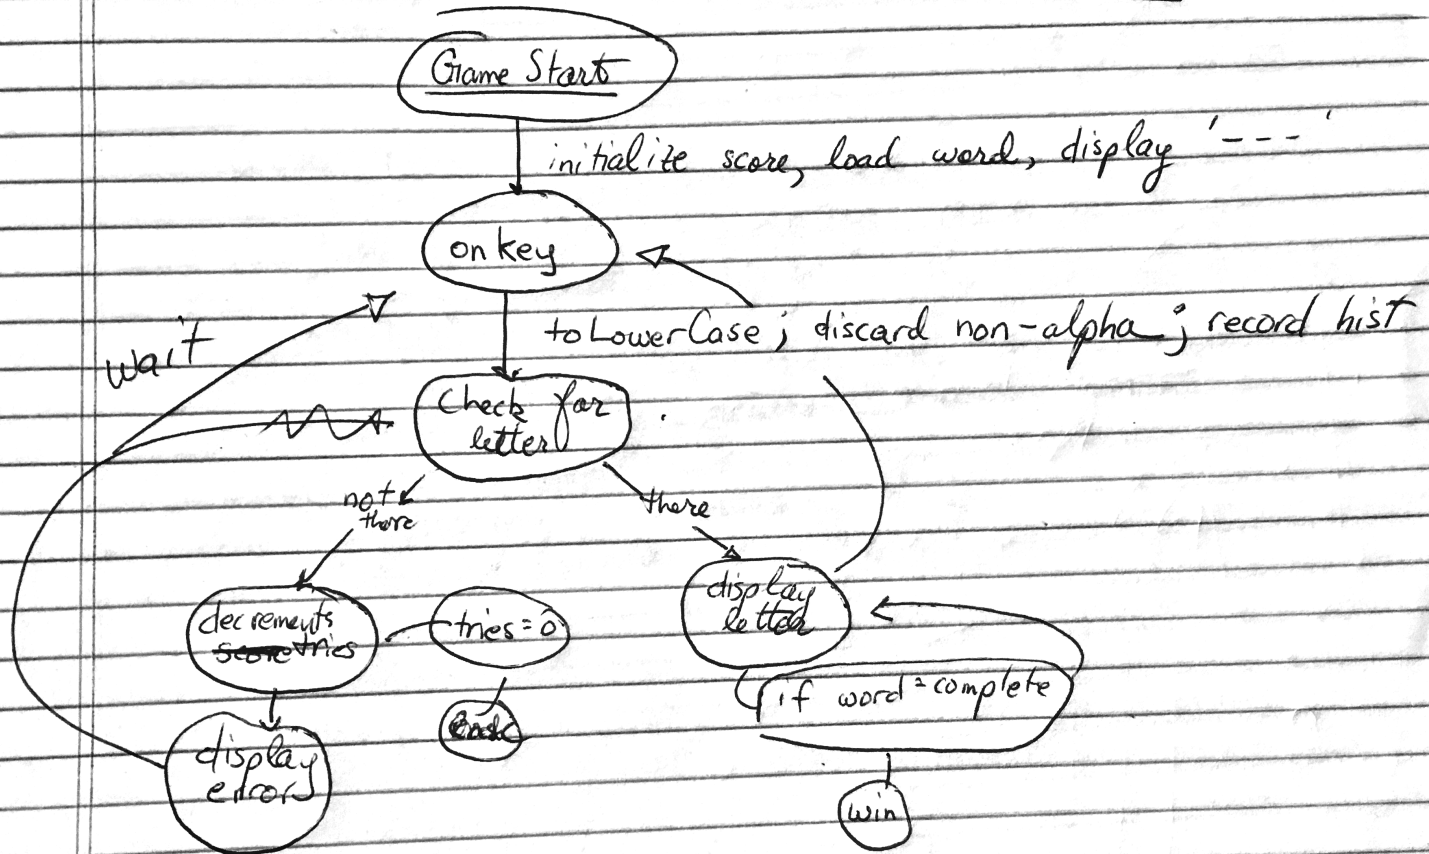 Game Start
initialize score, load word, display '---'
on key
wait
toLowerCase ; discard non-alpha ; record hist
Check for
letter
not
there
there
decrements
score tries
tries = 0
display
letter
if word = complete
end
display
errors
win